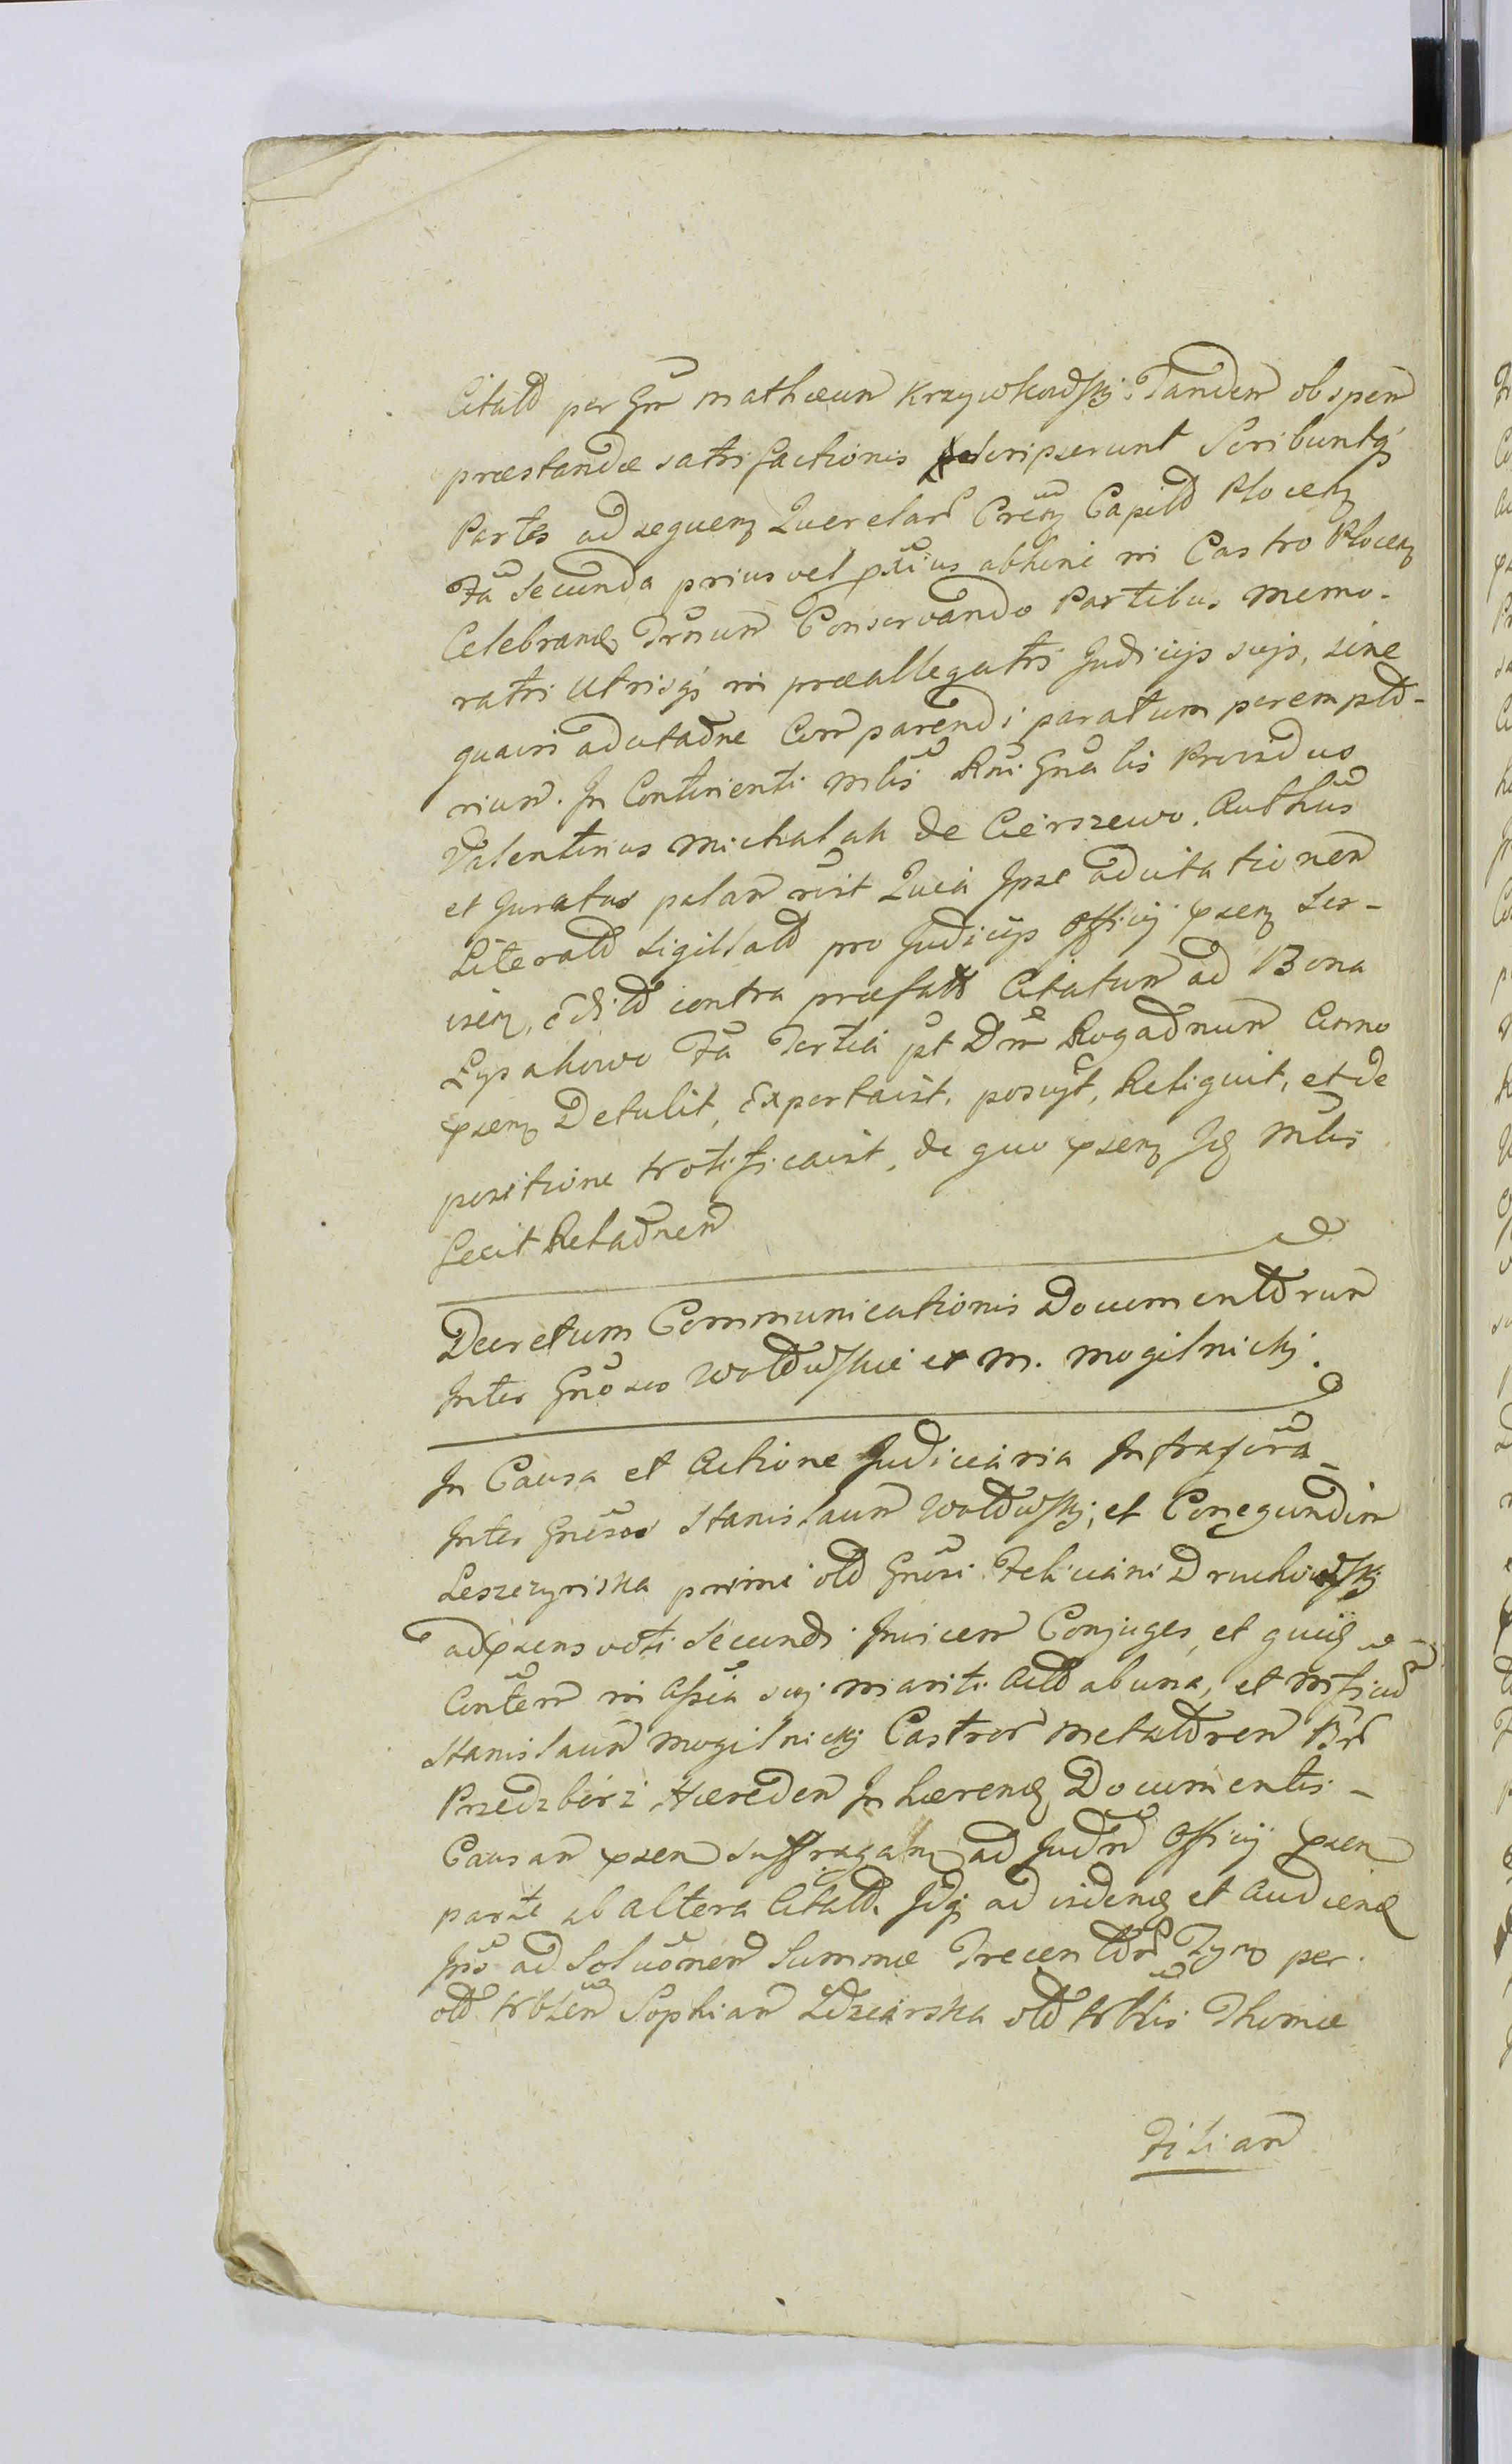 Citato per Gm Mathæum Krzywkowski. Tandem ob spem
præstandæ satisfactionis scripserunt Scribuntq
Partes ad sequen Querelar Crim Capitlo Plocen
Fa Secunda prius vel pxius abhinc in Castro Plocen
Celebrand Trnum Conservando Partibus memo-
ratis utrisq in præallegatis Judicijs suis, sine
quavis adcitaone Comparendi paratum perempto-
rium. In Continenti Mlis Rni Gnalis Providus
Valentinus Michalak de Cierszewo, Authus
et Juratus palam rvit Quia Ipse adcitationem
Literato Sigillato pro Judicijs Officij psen Ser-
visen, Edito contra præfato Citatum ad Bona
Lysakowo Fa Tertia pt Dm Rogaonum Anno
psen Detulit, Exportavit, posuyt, Reliquit, et de
positione Notificavit, de quo psen Jd Mlis
fecit Relaonem

Decretum Communicationis Documentorum
Inter Gnosos Wołowskie et M. Mogilnicki

In Causa et Actione Judiciaria Infrascra
Inter Gnosos Stanislaum Wołowski, et Conegundim
Leszczynska primi olo Gnosi Feliciani Druchowski
ad psens voti Secundi Invicem Conjuges, et quid
Contem in Assia sui mariti Acto ab una, et Mficum
Stanislaum Mogilnicki Castror Metatorem Br
Przedzbirz Hæredem Inhærend Documentis
Causam psen Suffragan ad Judm Officij psen
parte ab altera Citato. Idq ad vidend et Audiend
Jnio ad Soluonem Summæ Trecentor Tyn per
olo Nblem Sophiam Ldzenska olo Nblis Thomæ

Filiam